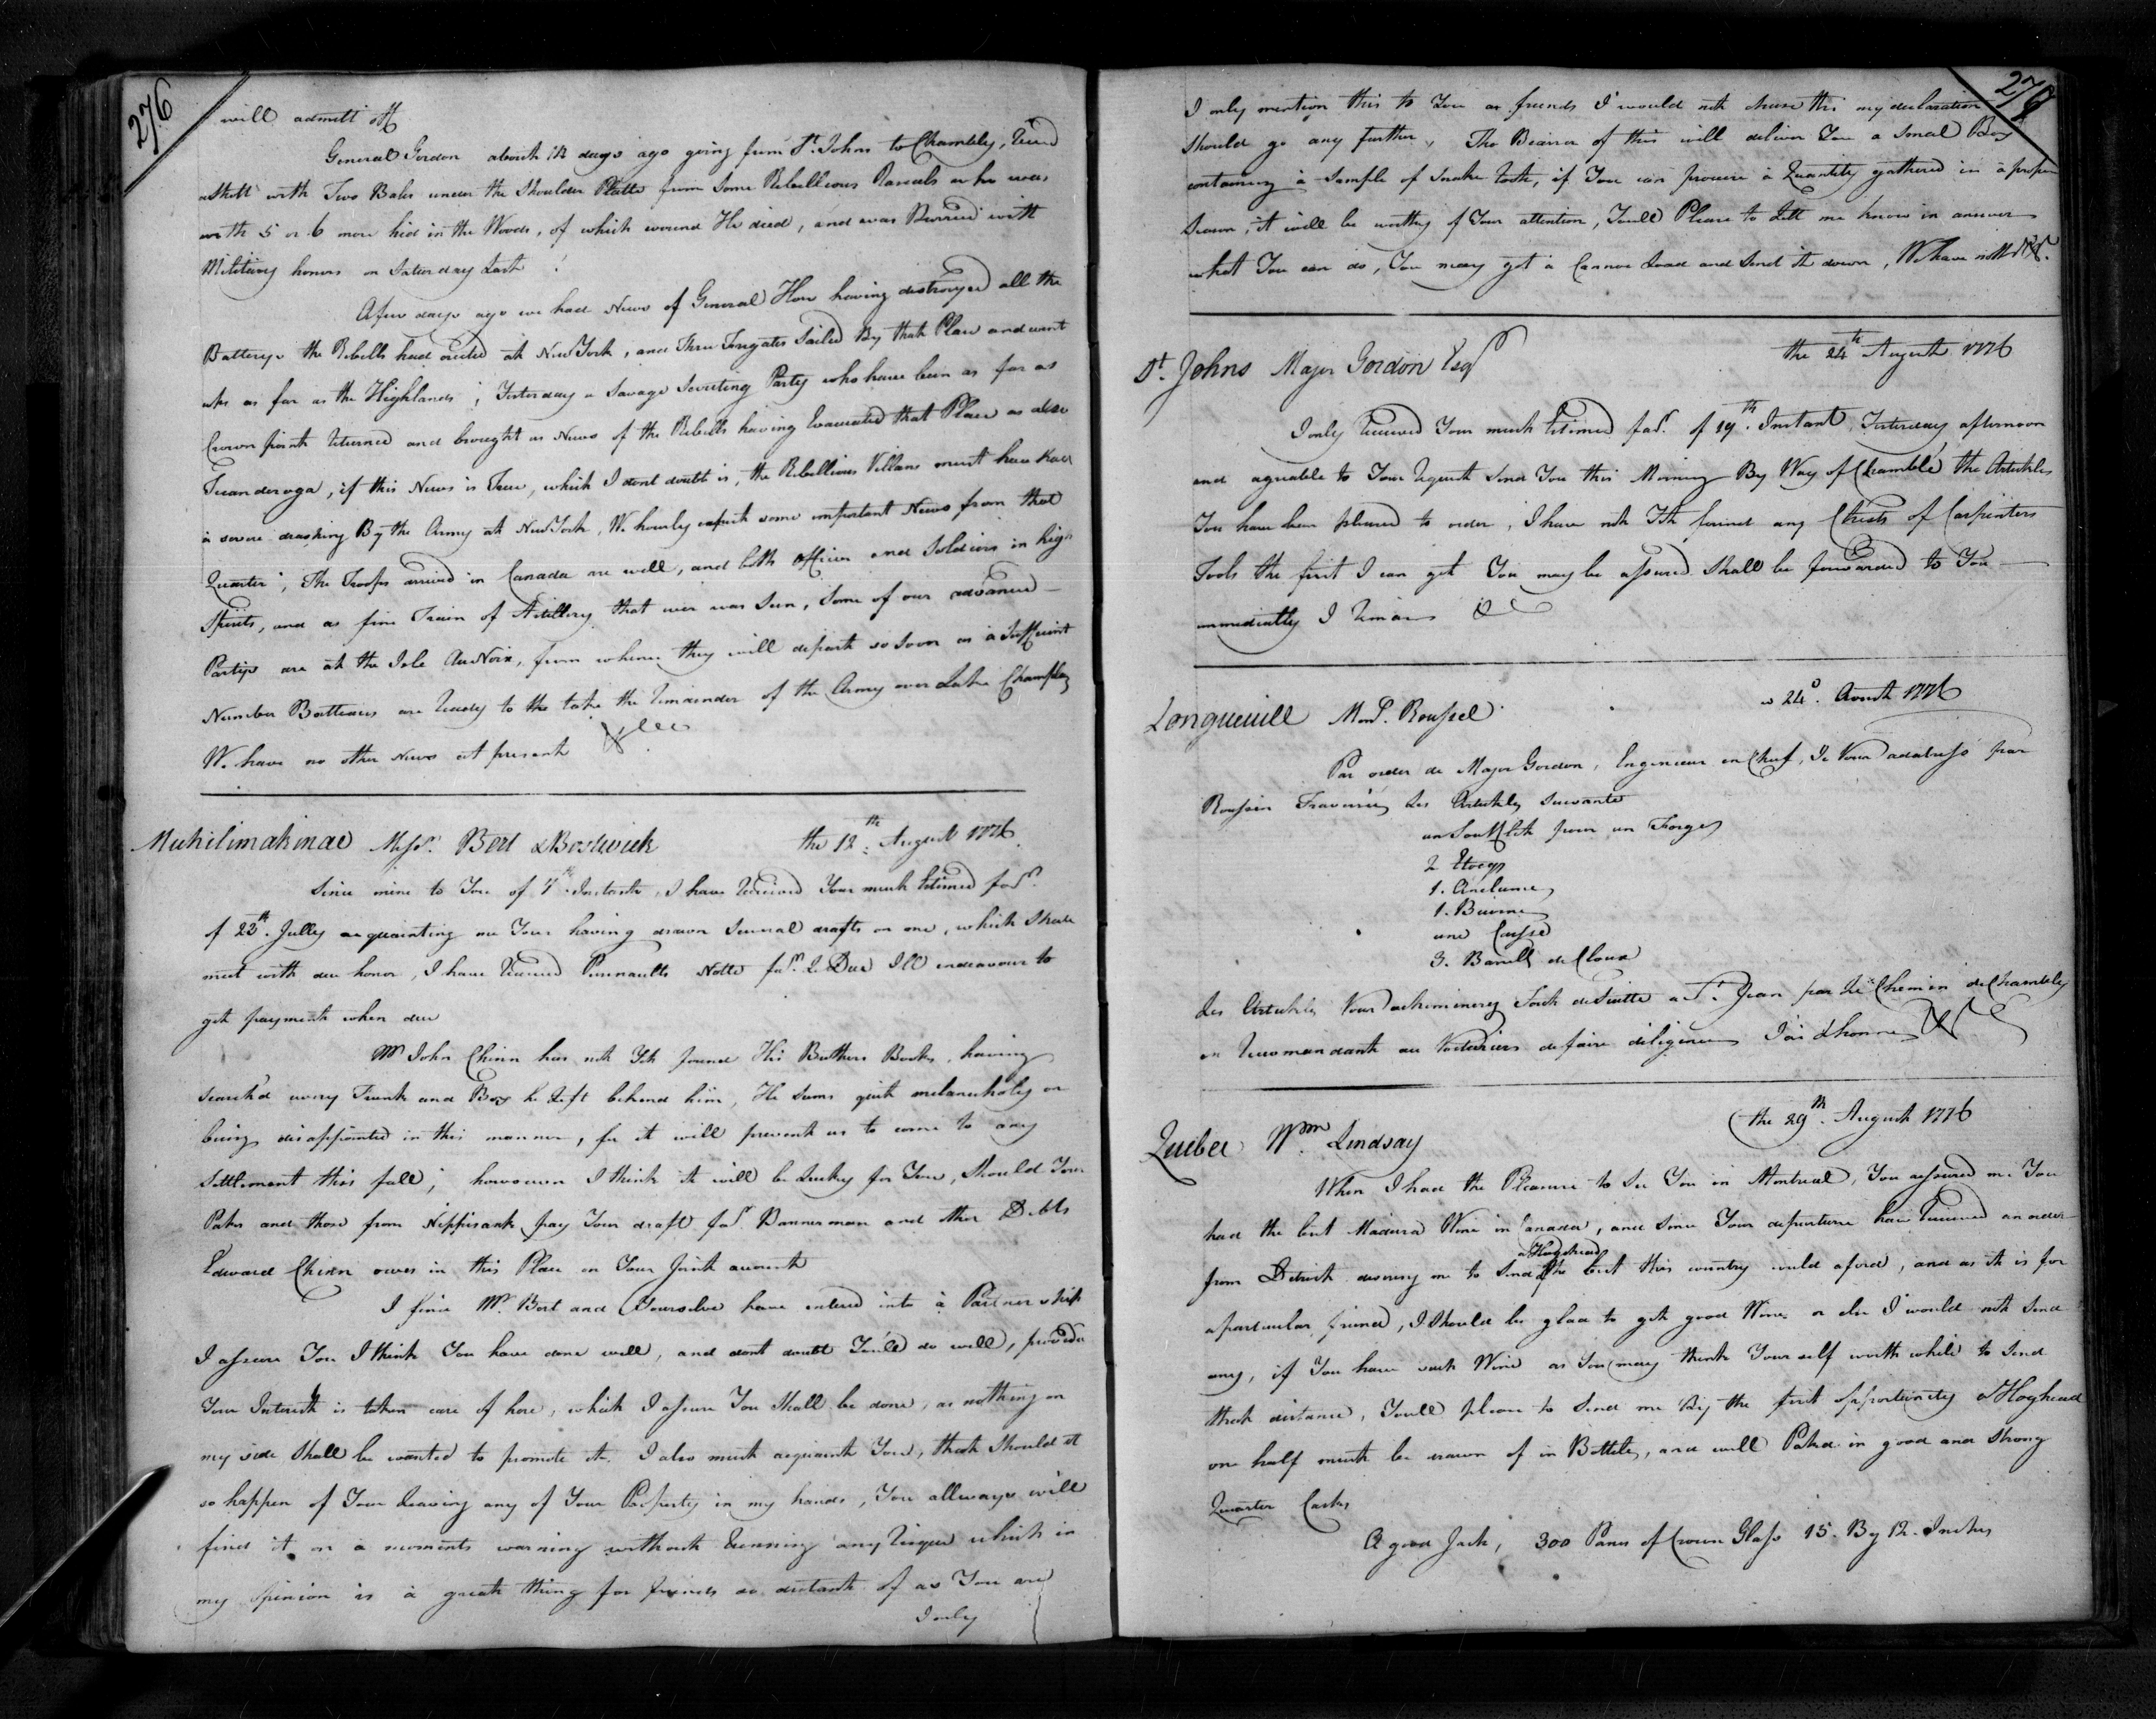 276
will admitt off
General Gordon about 12 days ago going from St. Johns to Chambly, Receivd
a Shott with Two Bales under the Shoulder Platte from some Rebellious Rascals as he was
with 5 or 6 more hid in the Woods, of which wound He died, and was Burried with
Military honors on Saturday Last
A few days ago we had News of General How having destroyed all the
Batterys the Rebells had at New York, and Three Frigates Sailed By that Place and went
as far as the Highlands; Yesterday a Savage Scouting Party who have been as far as
Crown point Returned and brought us News of the Rebells having Evacuated that Place as also
Ticanderoga, if this News is True, which I dont doubt is, the Rebellious Villans must have had
à severe drashing By the Army at New York, We hourly expect some important News from that
Quarter, The Troops arrived in Canada are well, and both officers and Soldiers in high
Spirits, and as fine Train of Artillery that ever was Seen, Some of our advanced
Partys are at the Isle Au Noix, from whence they will depart so soon as à Sufficient
Number Batteaus are Ready to the take the Remainder of the Army over Lake Champlay
We have no other News at present
Michilimakinac Messrs. Bert & Bostwick the 12th August 1776
Since mine to You of Instant, I have Received Your much Estimed
of 22d. Jully acquainting me Your having drawn Several drafts on me, which Shall
meet with due honor, I have Received Perinaults Notte I'll endeavour to
get payment when due
Mr John Chinn has not Yet found His Brothers Books, having
search'd every Trunk and Box he Left behind him, He seems quite melancholy on
being disappointed in this manner, for it will prevent us to come to any
Settlement this fall; howsoever I think it will be Lucky for You, Should Your
Paks and those from Nippisank pay Your draft Bannerman and other Debts
Edward Chinn owes in this Place on Your Joint account
I find Mr. Bert and Yourselve have entered into à Partnership
I assure You I think You have done well, and dont doubt You'll do well, provided
Your Interest is taken care of here, which I assure You Shall be done, as nothing on
my side Shall be wanted to promote it. I also must acquaint You, that Should it
so happen of Your Leaving any of Your Property in my hands, You allways will
find it on a moments warning without Running any Risque which in
my opinion is à great thing for friends so distant of as You are
I only
277
I only mention this to You as friends I would not chuse this my declaration
Should go any further, The Bearer of this will deliver You a Small Box
containing à Sample of Snake Root, if You can procure à Quantity gathered in à proper
Season, it will be worthy of Your attention, Youll Please to Lett me know in answer
what You can do, You may get à Cannoe Load and Send it down, We have nott
St. Johns Major Gordon Esqr the 24th August 1776
I only Received Your much Estimed of 19th. Instant Yesterday afternoon
and agreable to Your Request Send You this Morning By Way of Chamblé the Articles
You have been pleased to order, I have not Yett found any Chests of Carpinters
Tools the first I can get You may be assured Shall be forwarded to You
immediatly I Remain &c
Longueuill Monsr. Roussel 24. Aoust 1776
Par order de Major Gordon, Engenieur en Chef, Je Vous addresse par
Traversiez Les Articles Suivants
un Soufflett pour un Forge
2 Etoeg
1. Anclume
1. Bicorne
une Caisse
3. Barills de Cloux
Les Articles Vous achimineres Tout de Suitte a St. Jean par Le Chemin de Chambly
en Recomandant au Voituriers de faire diligence J'ai L'honneur &c
Quebec Wm. Lindsay the 29th. August 1776
When I had the Pleasure to See You in Montreal, You assured me You
had the best Madera Wine in Canada, and since Your departure have Received an order
from Detroit desiring me to Send a Hogshead of the best this country could aford, and as it is for
a particular friend, I Should be glad to get good Wine or else I would not Send
any, if You have such Wine as You may think Your self worth while to Send
that distance, Youll please to Send me By the first opportunity a Hoghead
one half must be drawn of in Bottels, and well Pakd in good and Strong
Quarter Casks
A good Jack, 300 Panes of Crown Glass 15. By 12. Inches